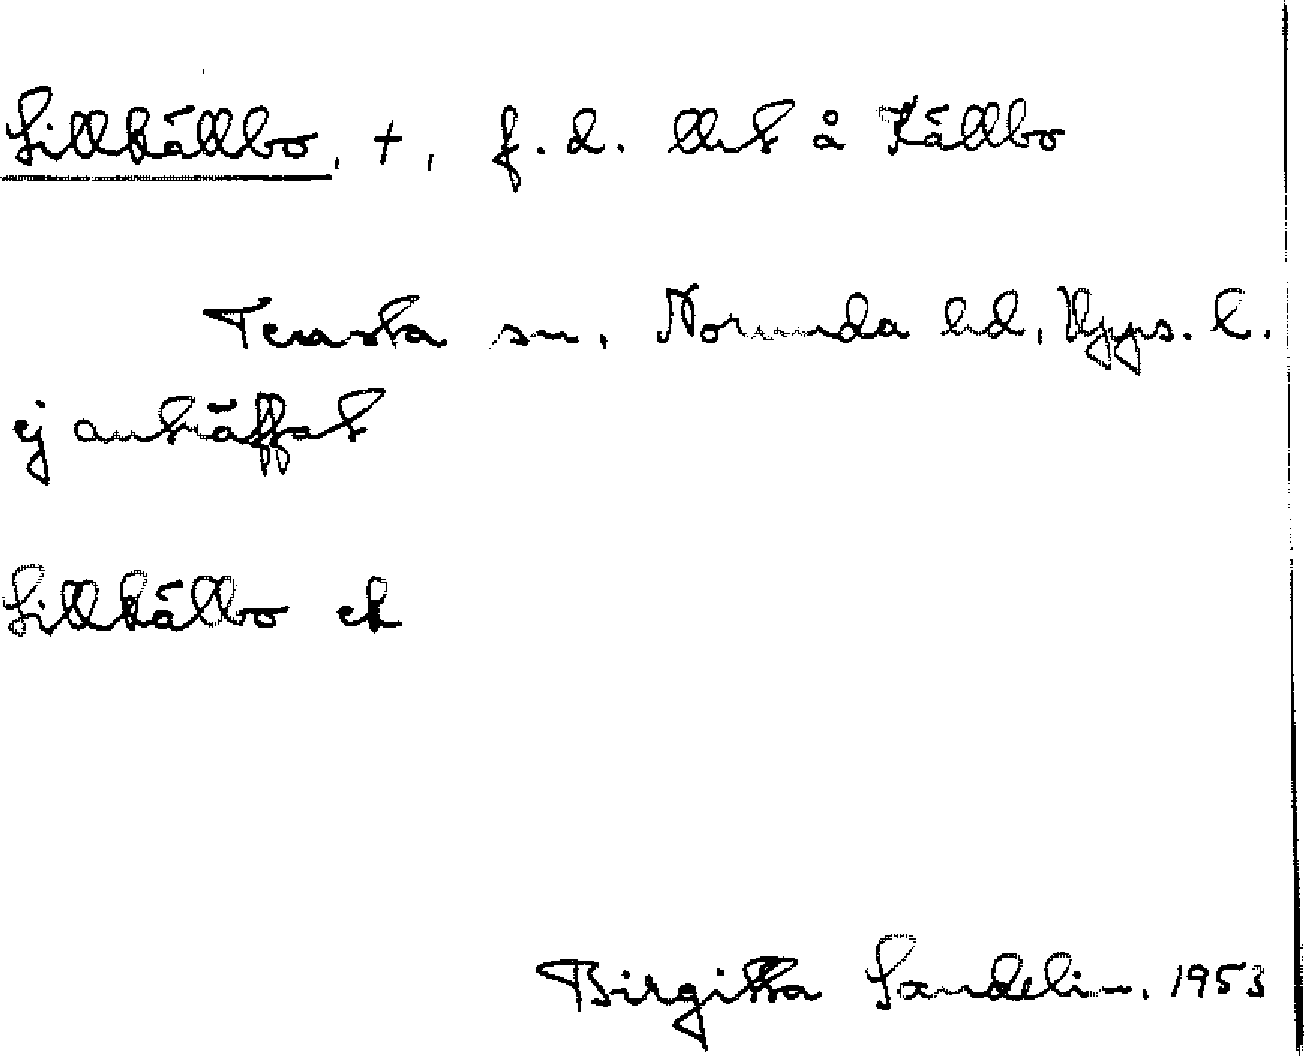 Lillkällbo, +, f.d. lht å Källbo
Tensta sn, Norunda hd, Upps. l.
ej anträffat
Lillkälbo ek
Birgitta Sandelin. 1953